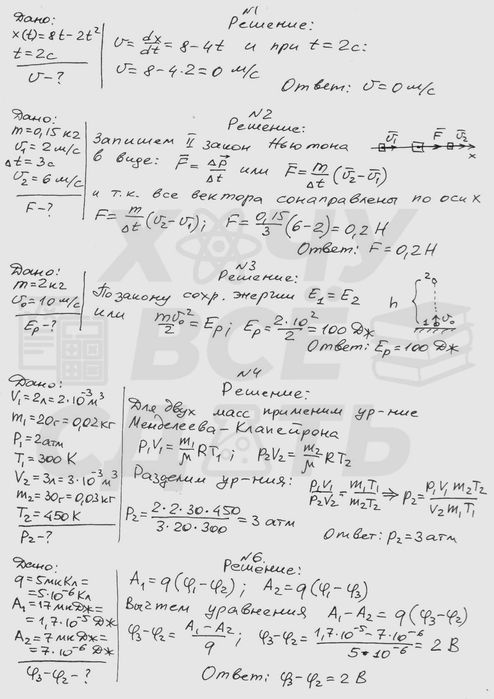 N1
Дано:
x(t)=8t-2t²
t=2c
υ-?
Решение:
υ = dx/dt = 8-4t и при t=2c:
υ=8-4·2=0 м/с
Ответ: υ=0 м/с
N2
Дано:
m=0,15 кг
υ₁=2 м/с
Δt=3c
υ₂=6 м/с
F-?
Решение:
Запишем II закон Ньютона
в виде: F̄=Δp̄/Δt или F̄=m/Δt(ῡ₂-ῡ₁)
ῡ₁ F̄ ῡ₂
x
и т.к. все вектора сонаправлены по оси x
F=m/Δt(υ₂-υ₁); F=0,15/3(6-2)=0,2 Н
Ответ: F=0,2 Н
N3
Дано:
m=2кг
υ₀=10 м/с
Eр-?
Решение:
По закону сохр. энергии E₁=E₂
или mυ₀²/2=Eр; Eр=2·10²/2=100 Дж
Ответ: Eр=100 Дж
2
h
1 ῡ₀
N4
Дано:
V₁=2л=2·10⁻³м³
m₁=20г=0,02кг
P₁=2атм
T₁=300К
V₂=3л=3·10⁻³м³
m₂=30г=0,03кг
T₂=450К
P₂-?
Решение:
Для двух масс применим ур-ние
Менделеева-Клапейрона
P₁V₁=m₁/μ RT₁; P₂V₂=m₂/μ RT₂
Разделим ур-ния: P₁V₁/P₂V₂=m₁T₁/m₂T₂ ⇒ P₂=P₁V₁m₂T₂/V₂m₁T₁
P₂=2·2·30·450/3·20·300=3 атм
Ответ: P₂=3 атм
N6
Дано:
q=5мкКл=
=5·10⁻⁶Кл
A₁=17мкДж=
=1,7·10⁻⁵Дж
A₂=7мкДж=
=7·10⁻⁶Дж
φ₃-φ₂-?
Решение:
A₁=q(φ₁-φ₂); A₂=q(φ₁-φ₃)
Вычтем уравнения A₁-A₂=q(φ₃-φ₂)
φ₃-φ₂=A₁-A₂/q; φ₃-φ₂=1,7·10⁻⁵-7·10⁻⁶/5*10⁻⁶=2 В
Ответ: φ₃-φ₂=2 В
ХОЧУ
ВСЁ
СДАТЬ